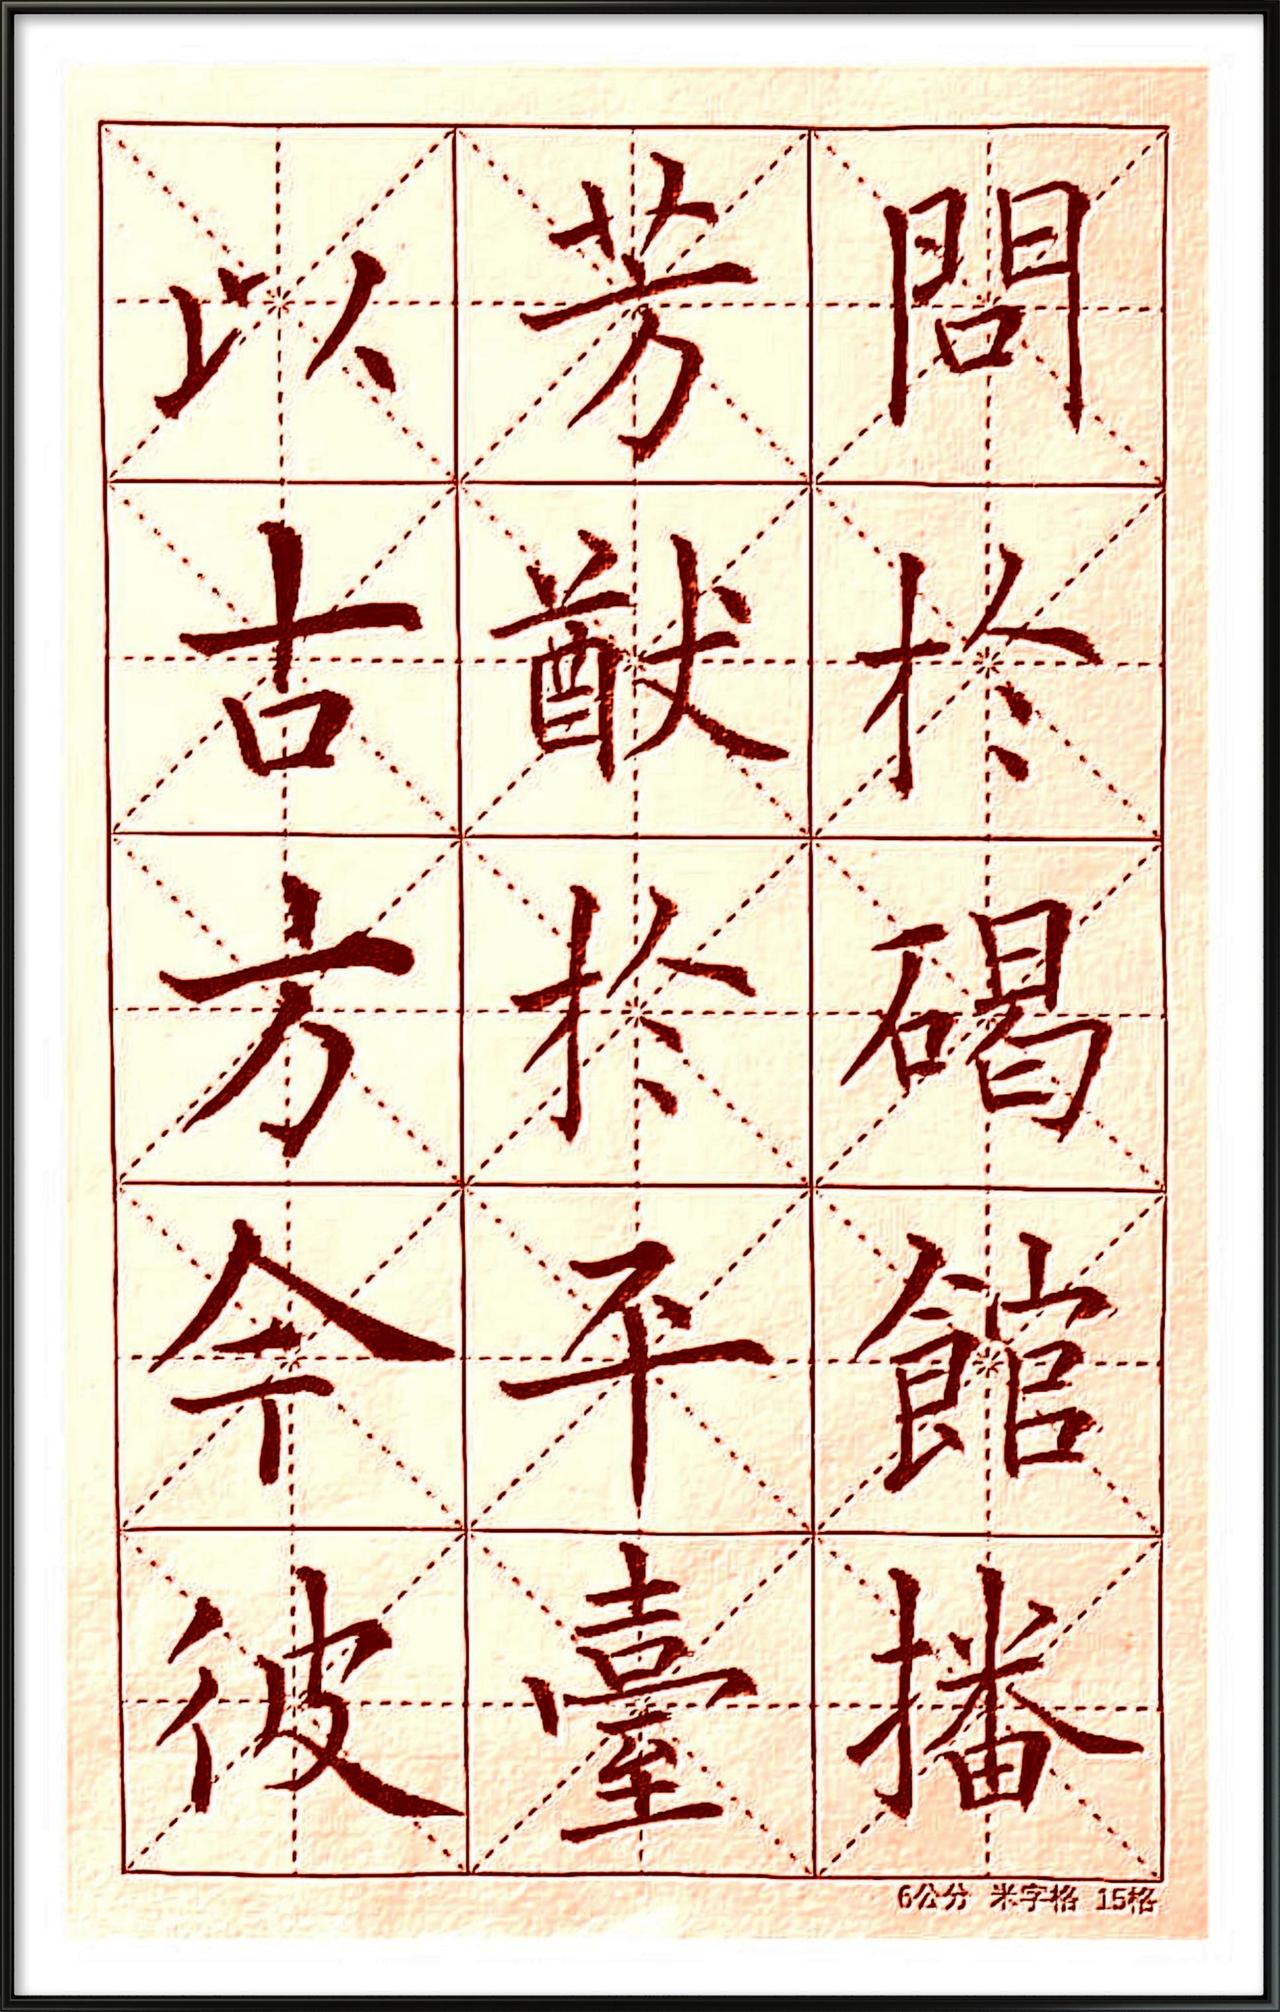 問於碣館播
芳猷於平臺
以古方今彼
6公分 米字格 15格